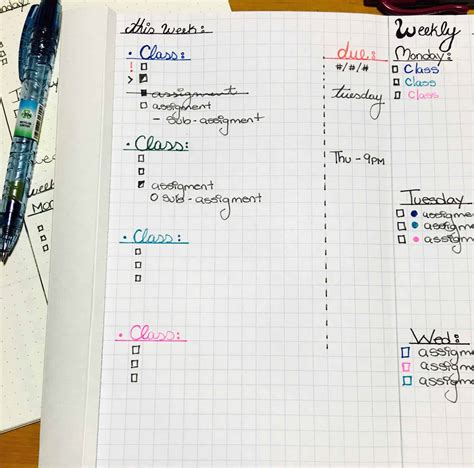 this week:
due:
• Class:
#/#/#
!
>
assigment
tuesday
assigment
- sub-assigment
Class:
Thu - 9PM
assigment
o sub-assigment
• Class:
• Class:
Weekly
Monday:
Class
Class
Class
Tuesday
• assigme
• assigme
• assigme
Wed:
assigme
assigme
assigme